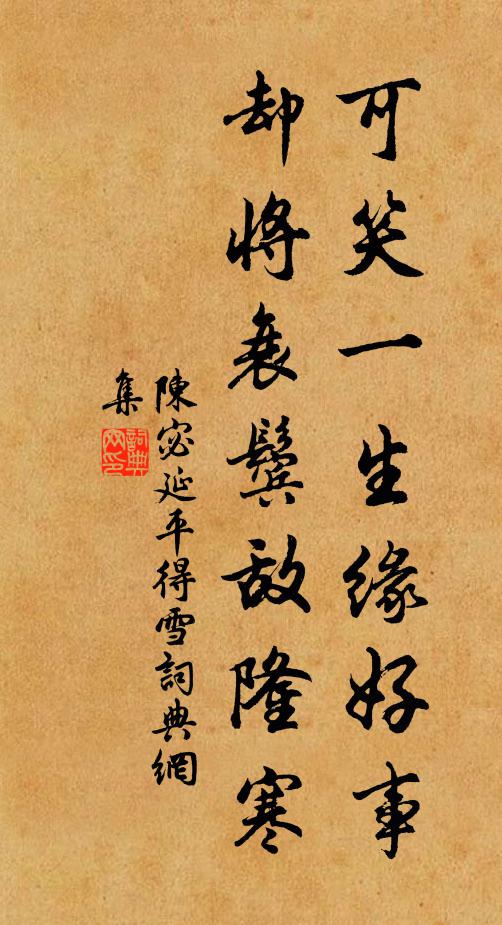 可笑一生緣好事
却將衰鬓敌隆寒
陳宓延平得雪詞典網
集
詞典
网印